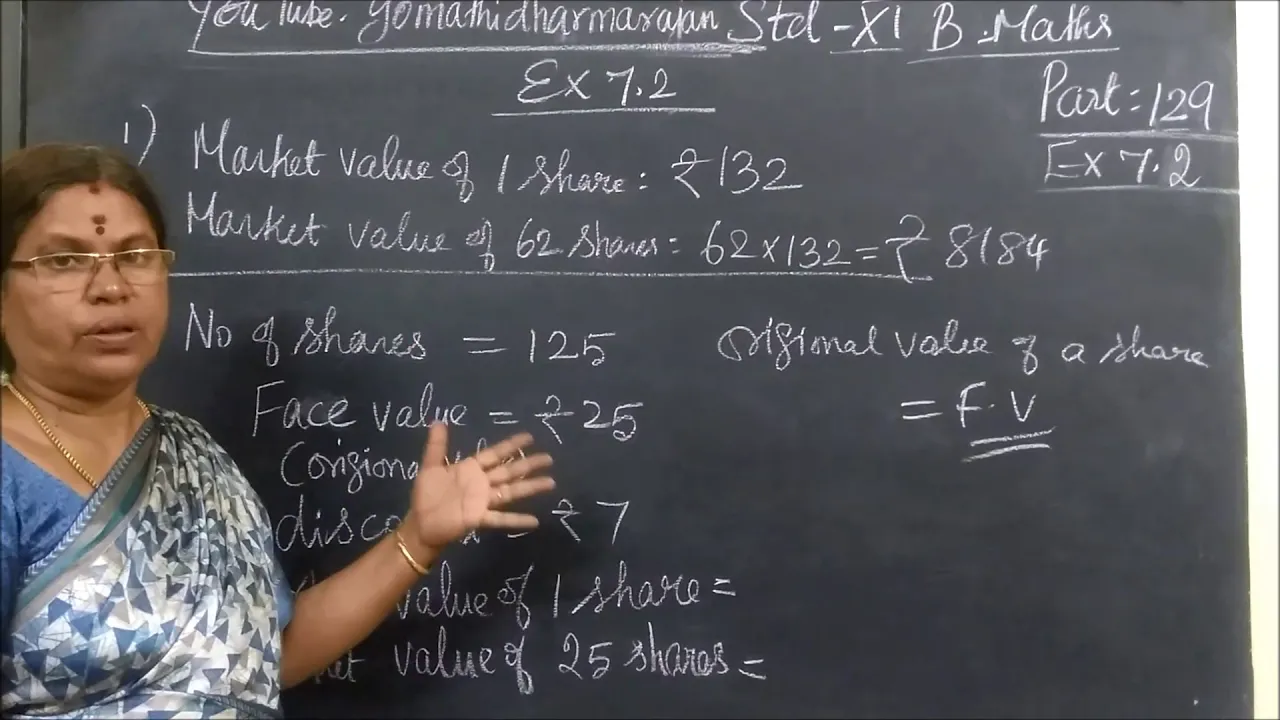 YouTube. Gomathidharmarajan Std-XI B.Maths
Ex 7.2
Part: 129
Ex 7.2
1) Market value of 1 share: ₹132
Market value of 62 shares: 62×132=₹8184
No of shares = 125
Face value = ₹25
disco = ₹7
value of 1 share=
value of 25 shares=
Origional value of a share
= F.V